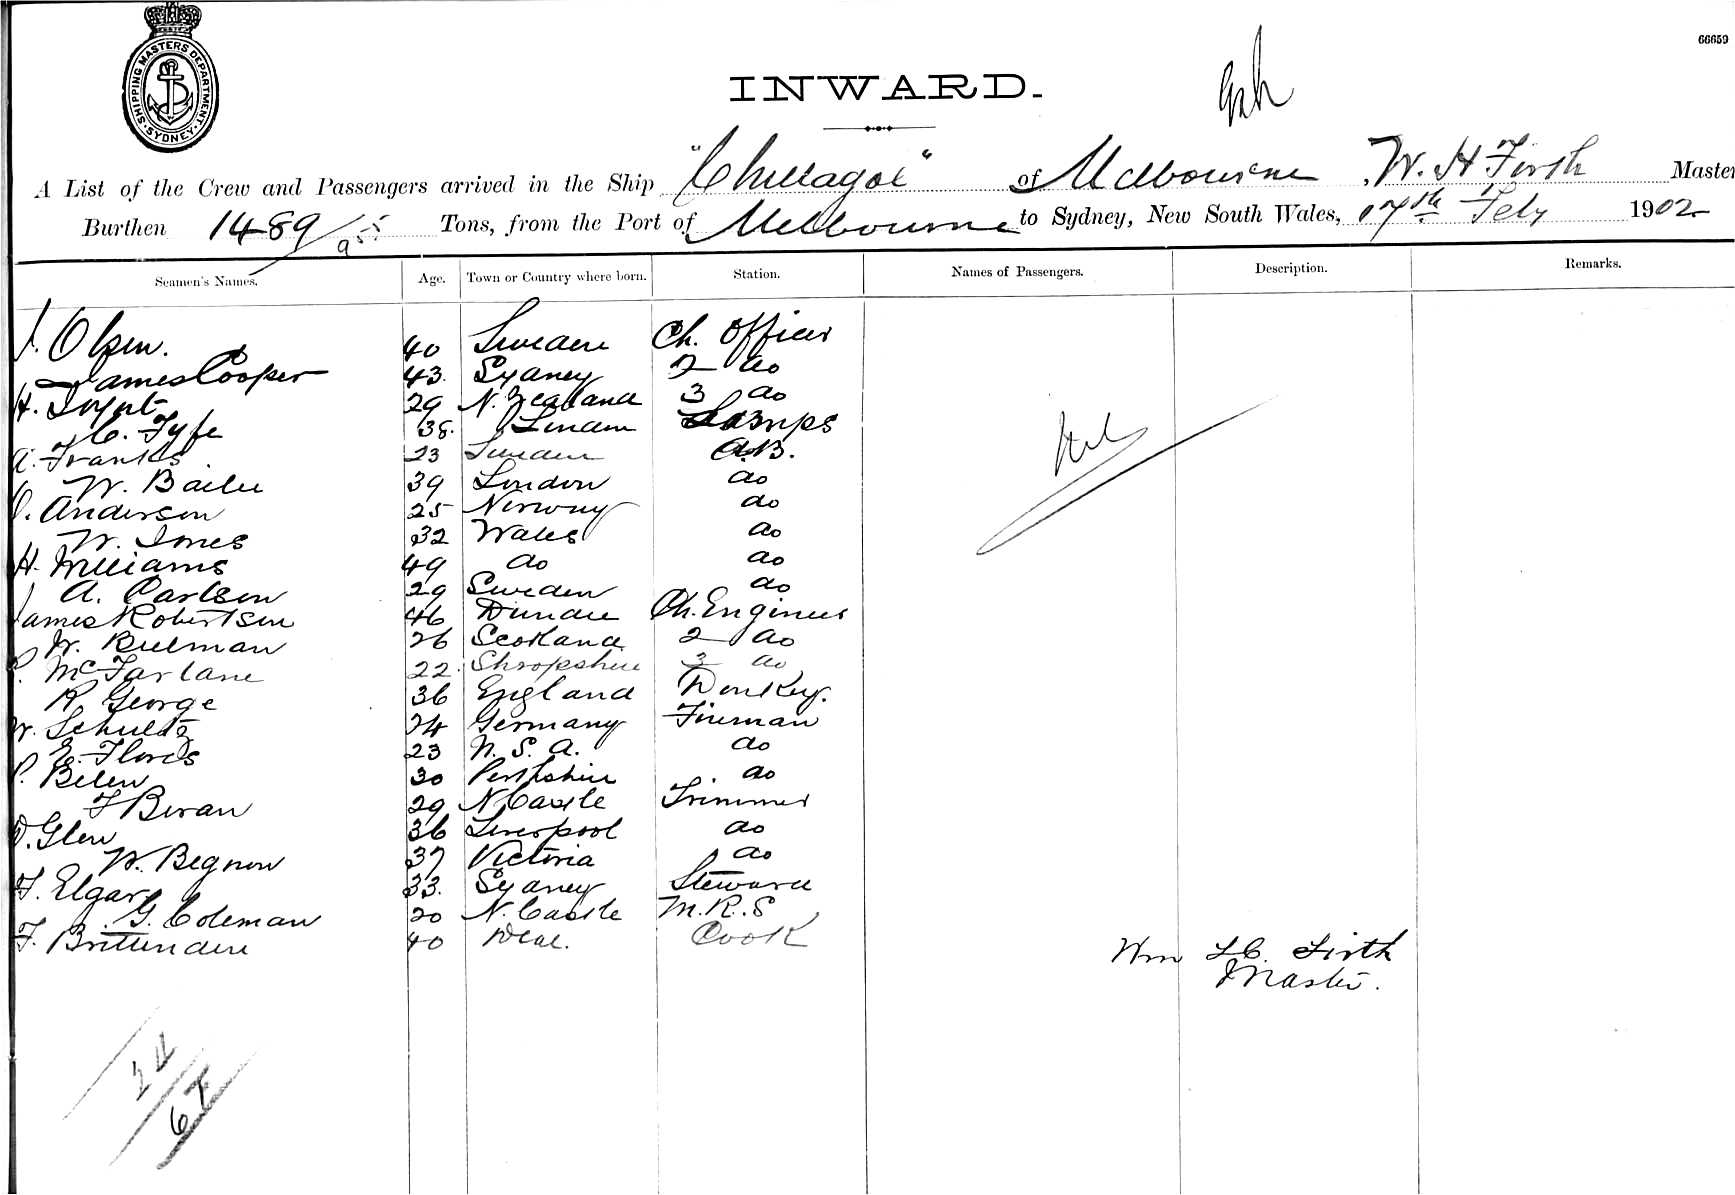 SHIPPING MASTERS DEPARTMENT
· SYDNEY ·
66659
INWARD.
A List of the Crew and Passengers arrived in the Ship "Chillagoe" of Melbourne, W. H Firth Master
Burthen 1489/955 Tons, from the Port of Melbourne to Sydney, New South Wales, 17th Feby 1902
Seamen's Names. Age. Town or Country where born. Station. Names of Passengers. Description. Remarks.
J. Olsen. 40 Sweden Ch. Officer
James Cooper 43. Sydney 2 do
H. 29 N. Zealand 3 do
C. Fyfe 38. London Lamps
A. Franks 23 Sweden A.B.
W. Bailee 39 London do
Anderson 25 Norway do
W. Jones 32 Wales do
H. Williams 49 do do
A. Carlson 29 Sweden do
James Robertson 46 Dundee Ch. Engineer
W. Bulman 26 Scotland 2 do
McFarlane 22. Shropshire 3 do
R George 36 England Donkey.
W. Schultz 24 Germany Fireman
E. Flores 23 U. S. A. do
P. Belen 30 Perthshire do
F Bevan 29 N Castle Trimmer
D. Glen 36 Liverpool do
W. Begnon 37 Victoria do
F. Elgar 33. Sydney Steward
G. Coleman 20 N. Castle M.R.S
F. Brittenden 40 Deal. Cook
Nil
Wm Firth
Master.